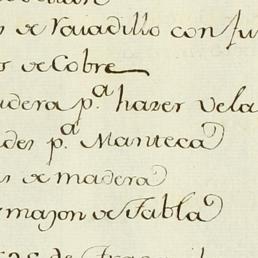 de Vaiadillo con fu
de Cobre
adera p.ª hazer vela
des p.ª Manteca
de madera
majon de Tabla
de